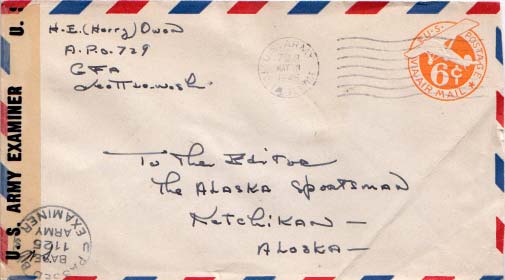 H.E. (Harry) Owen
A.P.O. 729
CFA
Seattle-Wash
U.S. ARMY
U.S. POSTAGE
6¢
VIA AIR MAIL
To The Editor
The Alaska Sportsman
Ketchikan —
Alaska —
U.S. ARMY EXAMINER U.S.
PASSED
BASE
1125
ARMY
EXAMINER